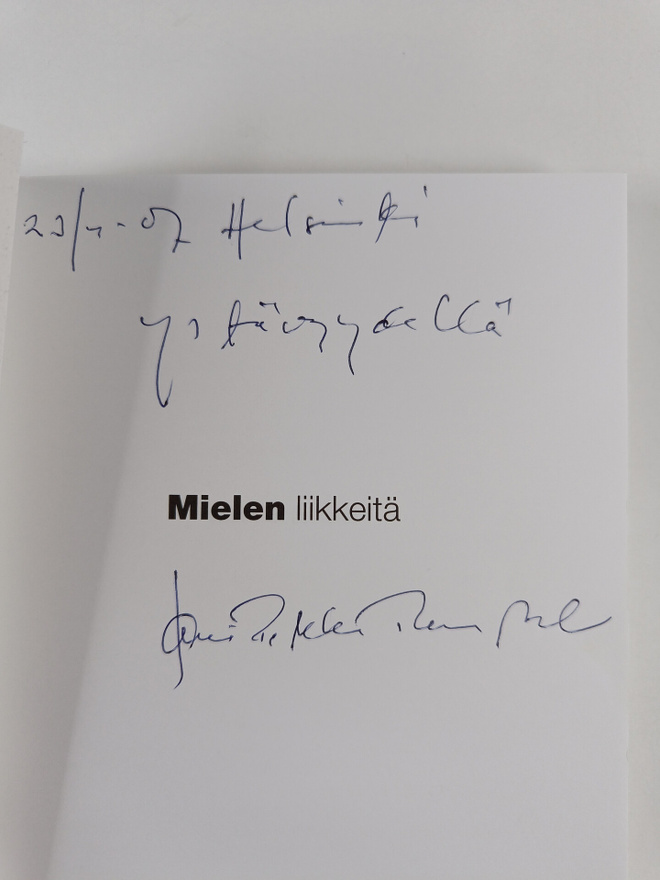 23/4-07 Helsinki
ystävyydellä
Mielen liikkeitä